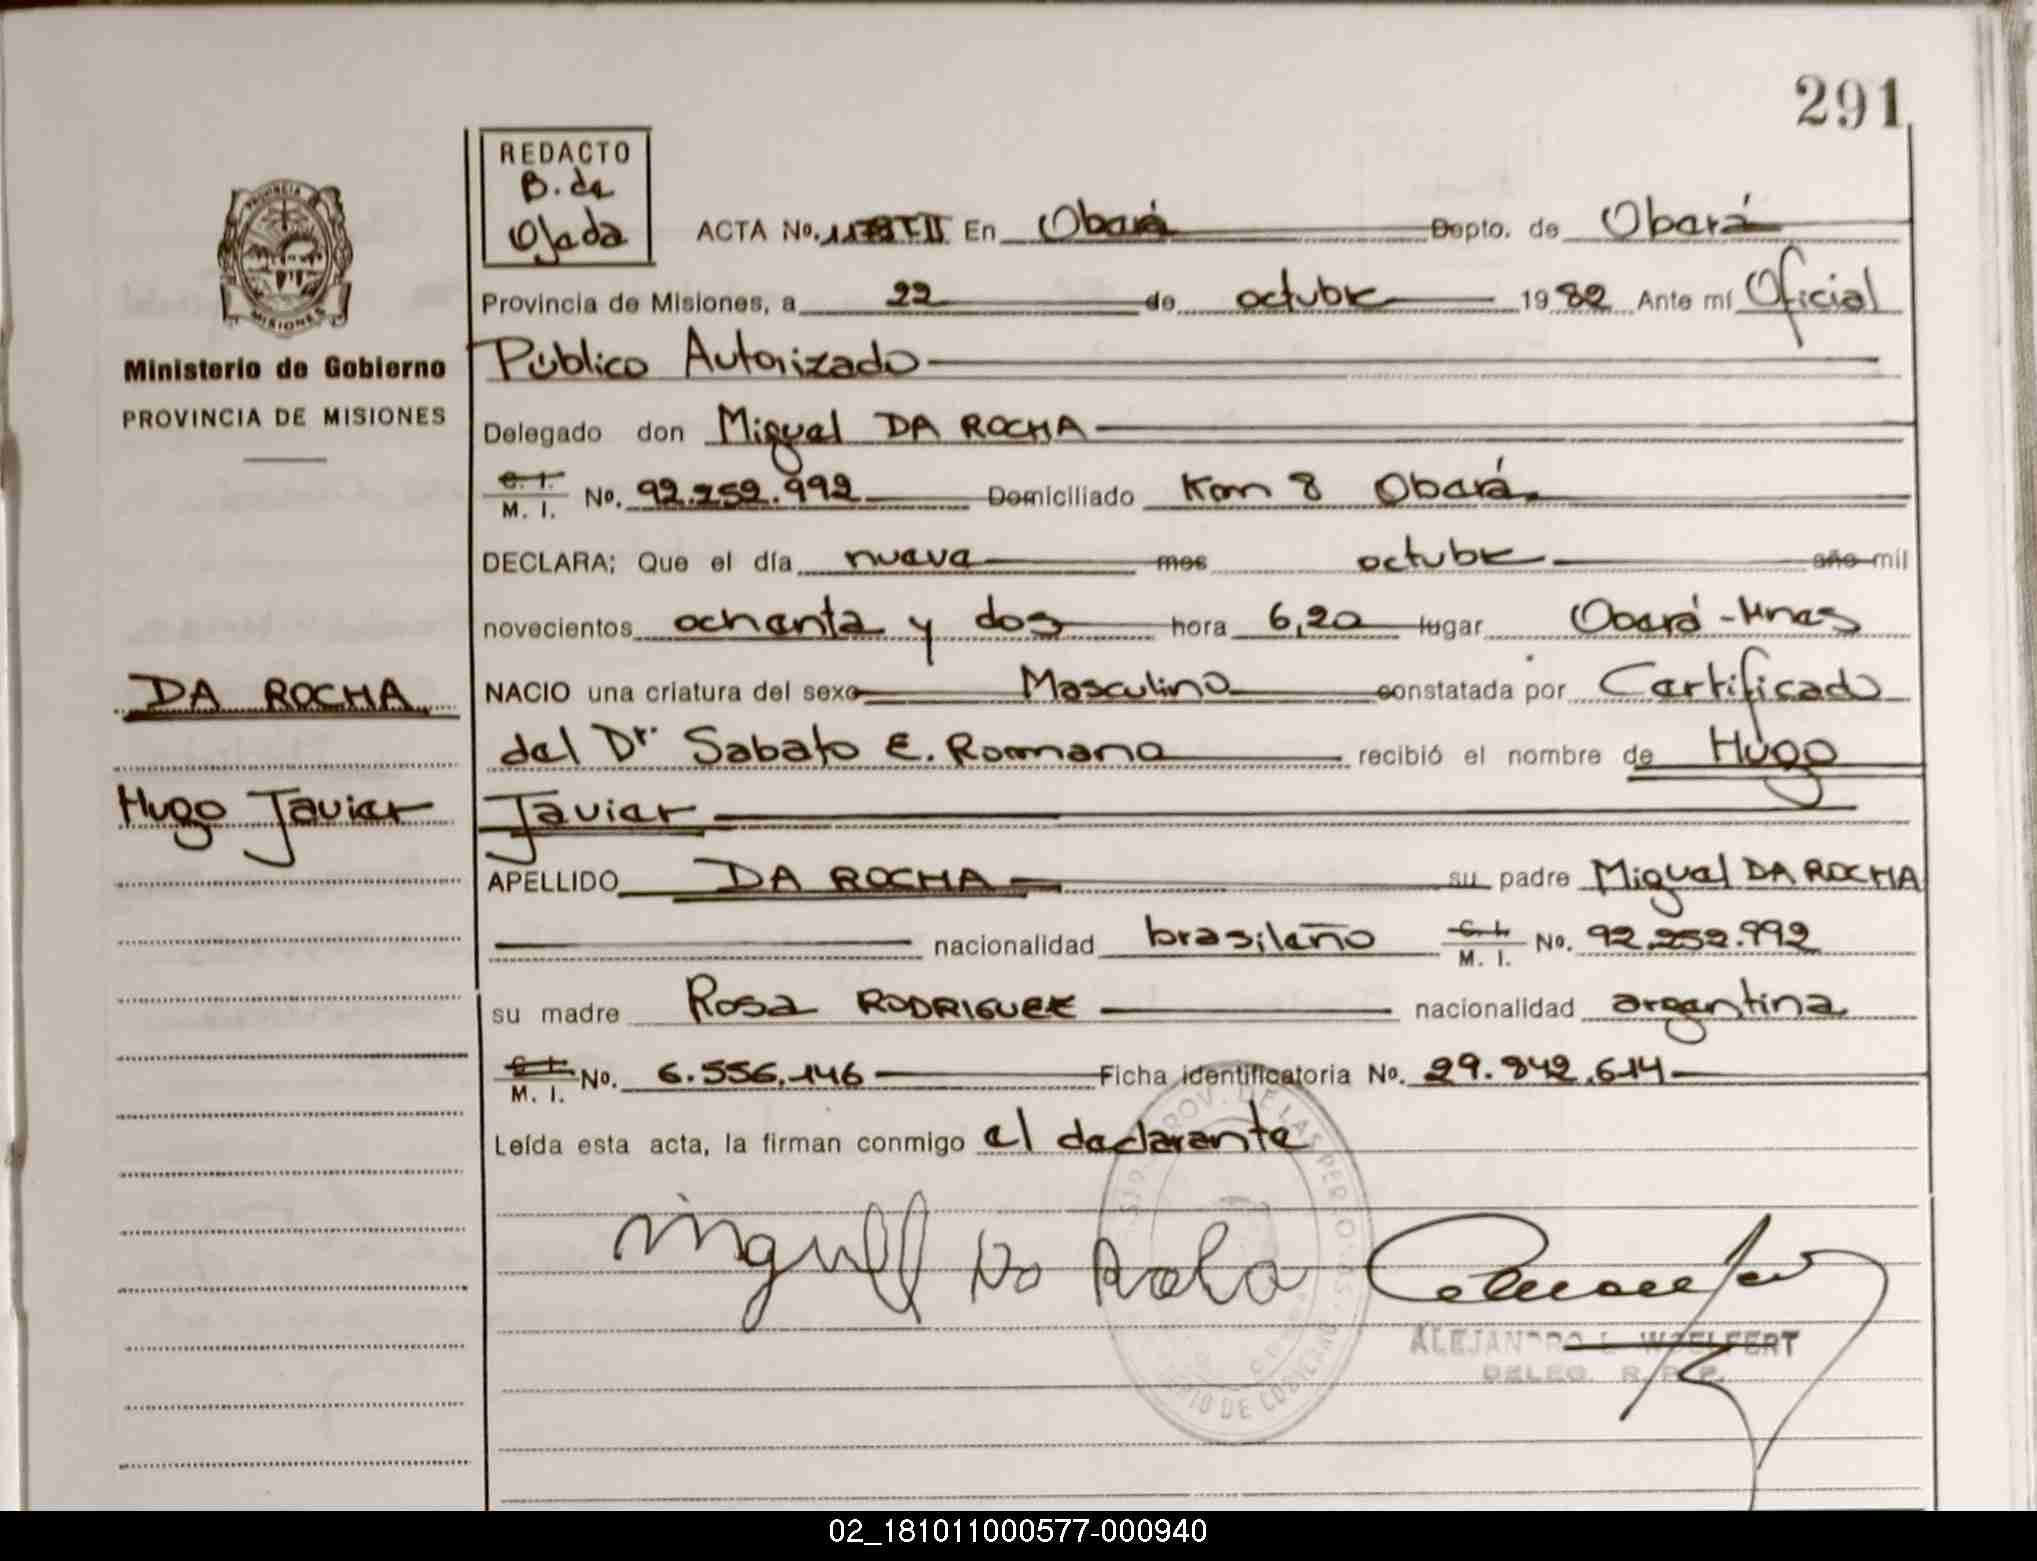 291
REDACTO
B. de
Ojeda
ACTA No. T-II En Oberá Depto. de Oberá
Provincia de Misiones, a 22 de octubre 1982 Ante mí Oficial
Ministerio de Gobierno
Público Autorizado
PROVINCIA DE MISIONES
Delegado don Miguel DA ROCHA
C. I.
M. I. No. 92.252.992 Domiciliado Km 8 Oberá
DECLARA; Que el día nueve mes octubre año mil
novecientos ochenta y dos hora 6,20 lugar Oberá-Mnes
DA ROCHA
NACIO una criatura del sexo Masculino constatada por Certificado
del Dr. Sabato E. Romano recibió el nombre de Hugo
Hugo Javier
Javier
APELLIDO DA ROCHA su padre Miguel DA ROCHA
nacionalidad brasileño C. I. M. I. No. 92.252.992
su madre Rosa RODRIGUEZ nacionalidad argentina
C. I.
M. I. No. 6.556.146 Ficha identificatoria No. 29.842.614
Leída esta acta, la firman conmigo el declarante
Miguel Da Rocha
ALEJANDRO L. WOELFERT
DELEG. R. P. P.
02_181011000577-000940